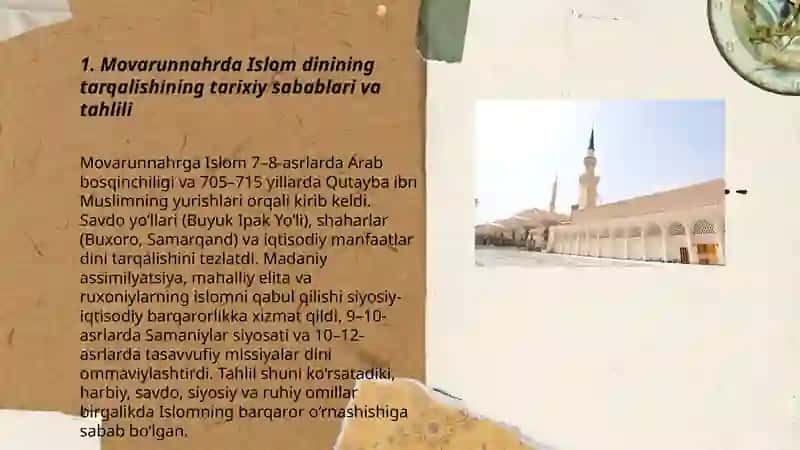 1. Movarunnahrda Islom dinining
tarqalishining tarixiy sabablari va
tahlili
Movarunnahrga Islom 7–8-asrlarda Arab
bosqinchiligi va 705–715 yillarda Qutayba ibn
Muslimning yurishlari orqali kirib keldi.
Savdo yo‘llari (Buyuk Ipak Yo‘li), shaharlar
(Buxoro, Samarqand) va iqtisodiy manfaatlar
dini tarqalishini tezlatdi. Madaniy
assimilyatsiya, mahalliy elita va
ruxoniylarning islomni qabul qilishi siyosiy-
iqtisodiy barqarorlikka xizmat qildi, 9–10-
asrlarda Samaniylar siyosati va 10–12-
asrlarda tasavvufiy missiyalar dini
ommaviylashtirdi. Tahlil shuni ko‘rsatadiki,
harbiy, savdo, siyosiy va ruhiy omillar
birgalikda Islomning barqaror o‘rnashishiga
sabab bo‘lgan.